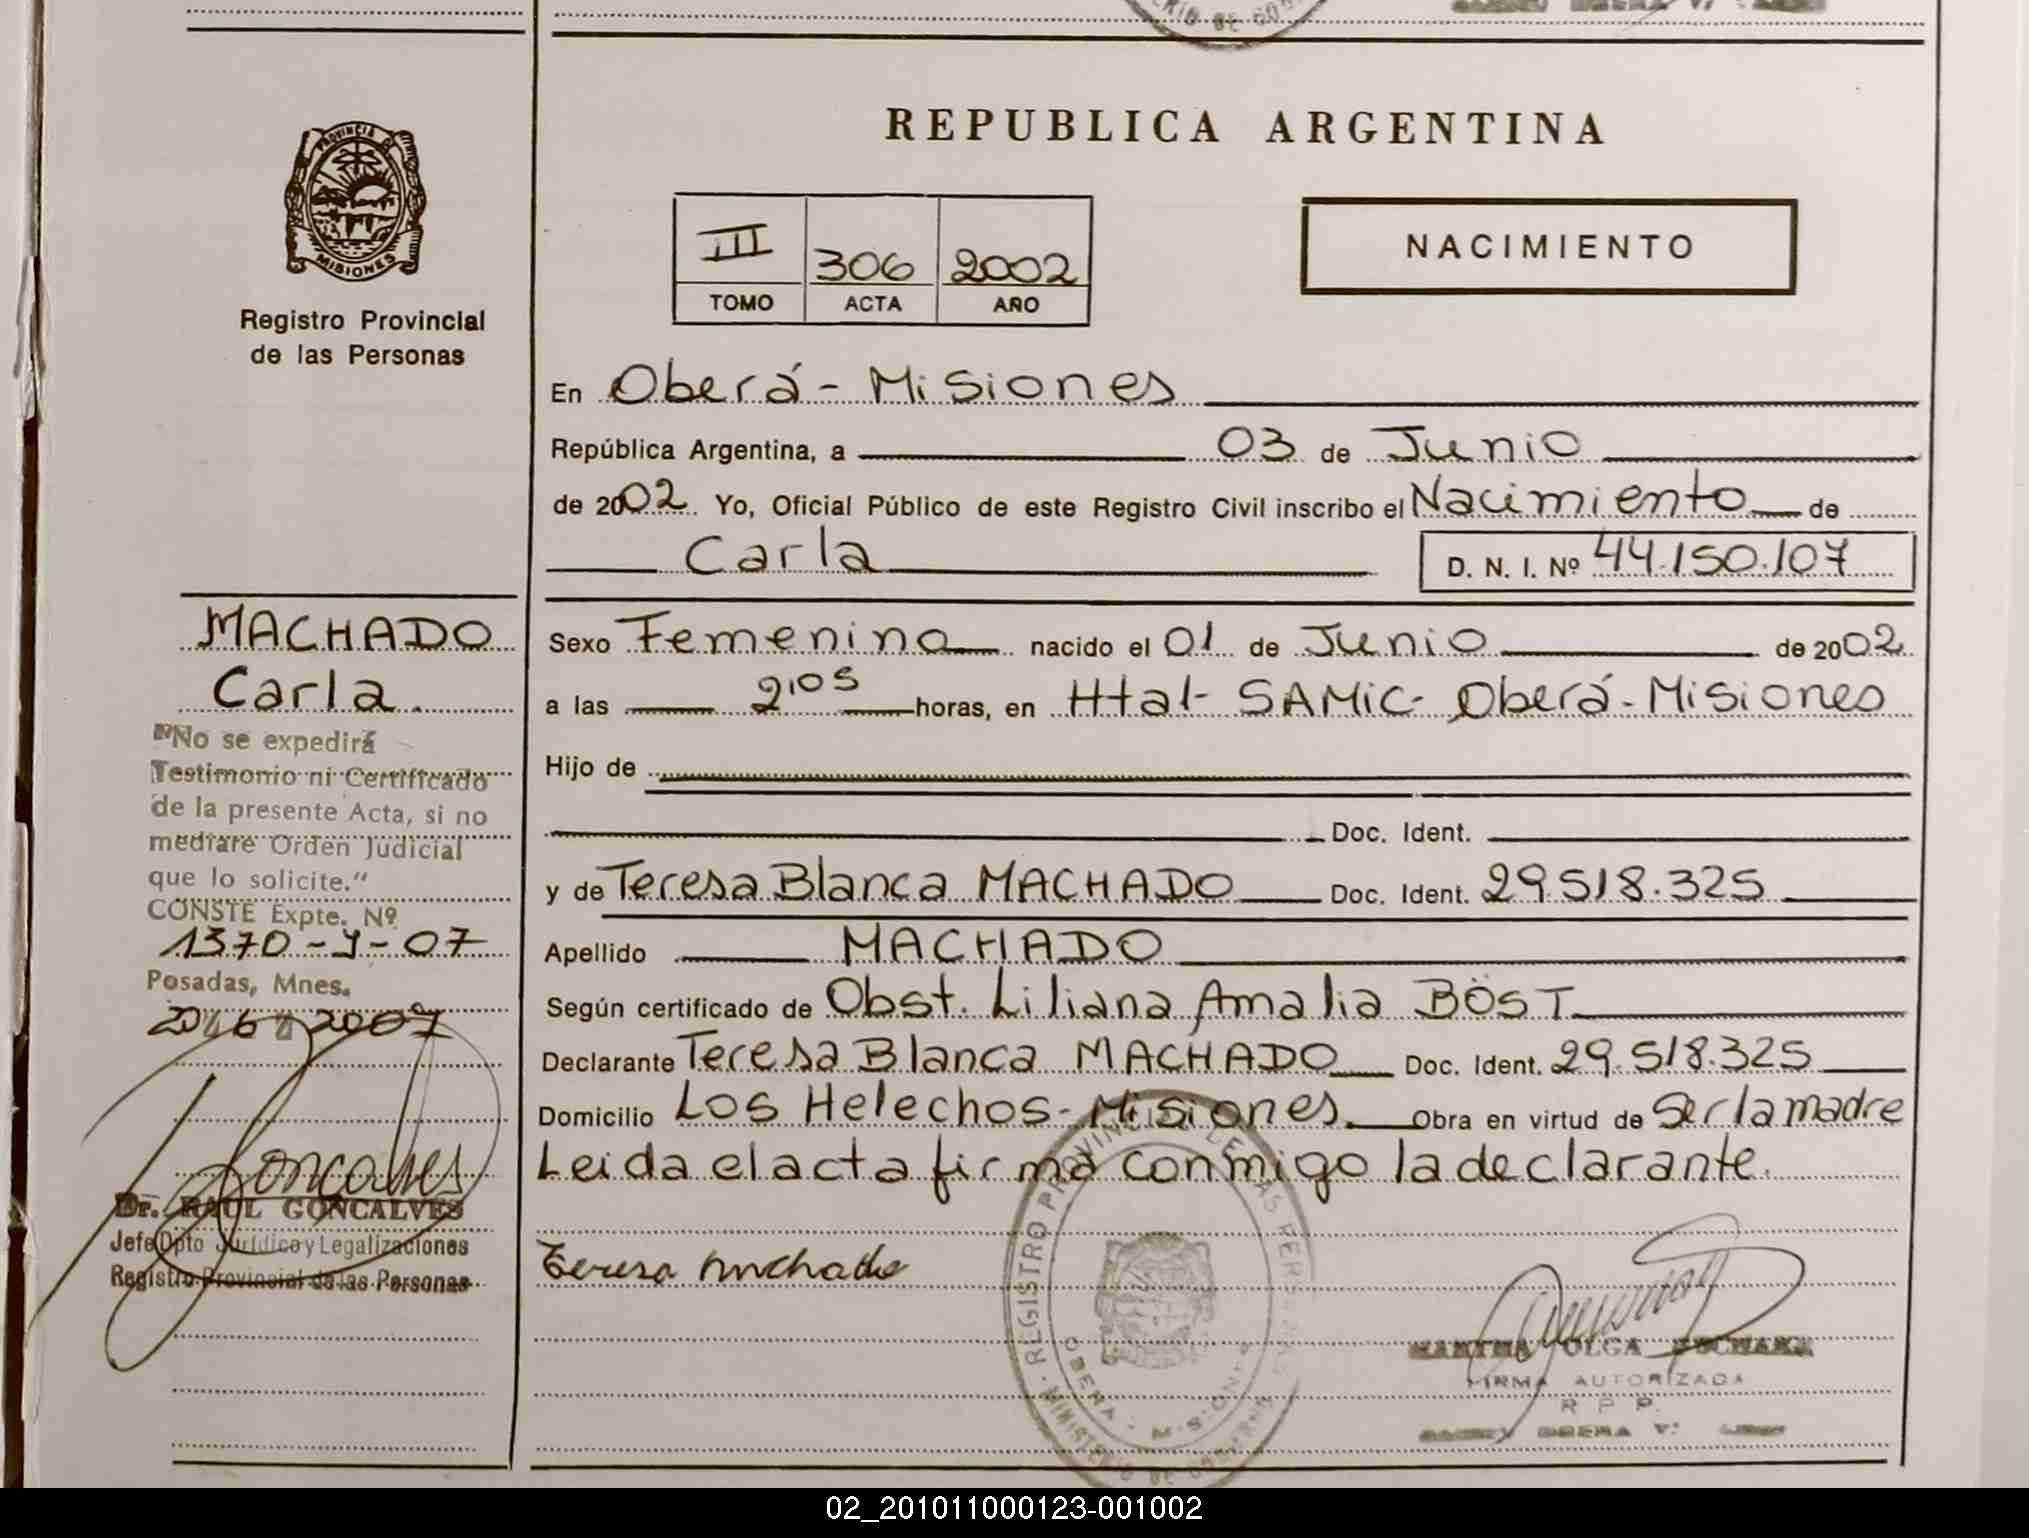 REPUBLICA ARGENTINA
PROVINCIA
MISIONES
Registro Provincial
de las Personas
III 306 2002
TOMO ACTA AÑO
NACIMIENTO
En Oberá - Misiones
República Argentina, a 03 de Junio
de 2002. Yo, Oficial Público de este Registro Civil inscribo el Nacimiento de
Carla D. N. I. Nº 44.150.107
Sexo Femenino nacido el 01 de Junio de 2002
a las 2,05 horas, en Htal- SAMIC- Oberá-Misiones
Hijo de
Doc. Ident.
y de Teresa Blanca MACHADO Doc. Ident. 29.518.325
Apellido MACHADO
Según certificado de Obst. Liliana Amalia BÖST
Declarante Teresa Blanca MACHADO Doc. Ident. 29.518.325
Domicilio Los Helechos-Misiones. Obra en virtud de Ser la madre
Leida el acta firma conmigo la declarante.
Teresa Machado
OLGA
FIRMA AUTORIZADA
R P P.
OBERA
MACHADO
Carla.
"No se expedirá
Testimonio ni Certificado
de la presente Acta, si no
mediare Orden Judicial
que lo solicite."
CONSTE Expte. Nº
1370-J-07
Posadas, Mnes.
2007
Goncalves
Dr. RAUL GONCALVES
Jefe Dpto Jurídico y Legalizaciones
Registro Provincial de las Personas
REGISTRO PROVINCIAL DE LAS PERSONAS
MINISTERIO DE GOBIERNO
OBERA - MISIONES
02_201011000123-001002